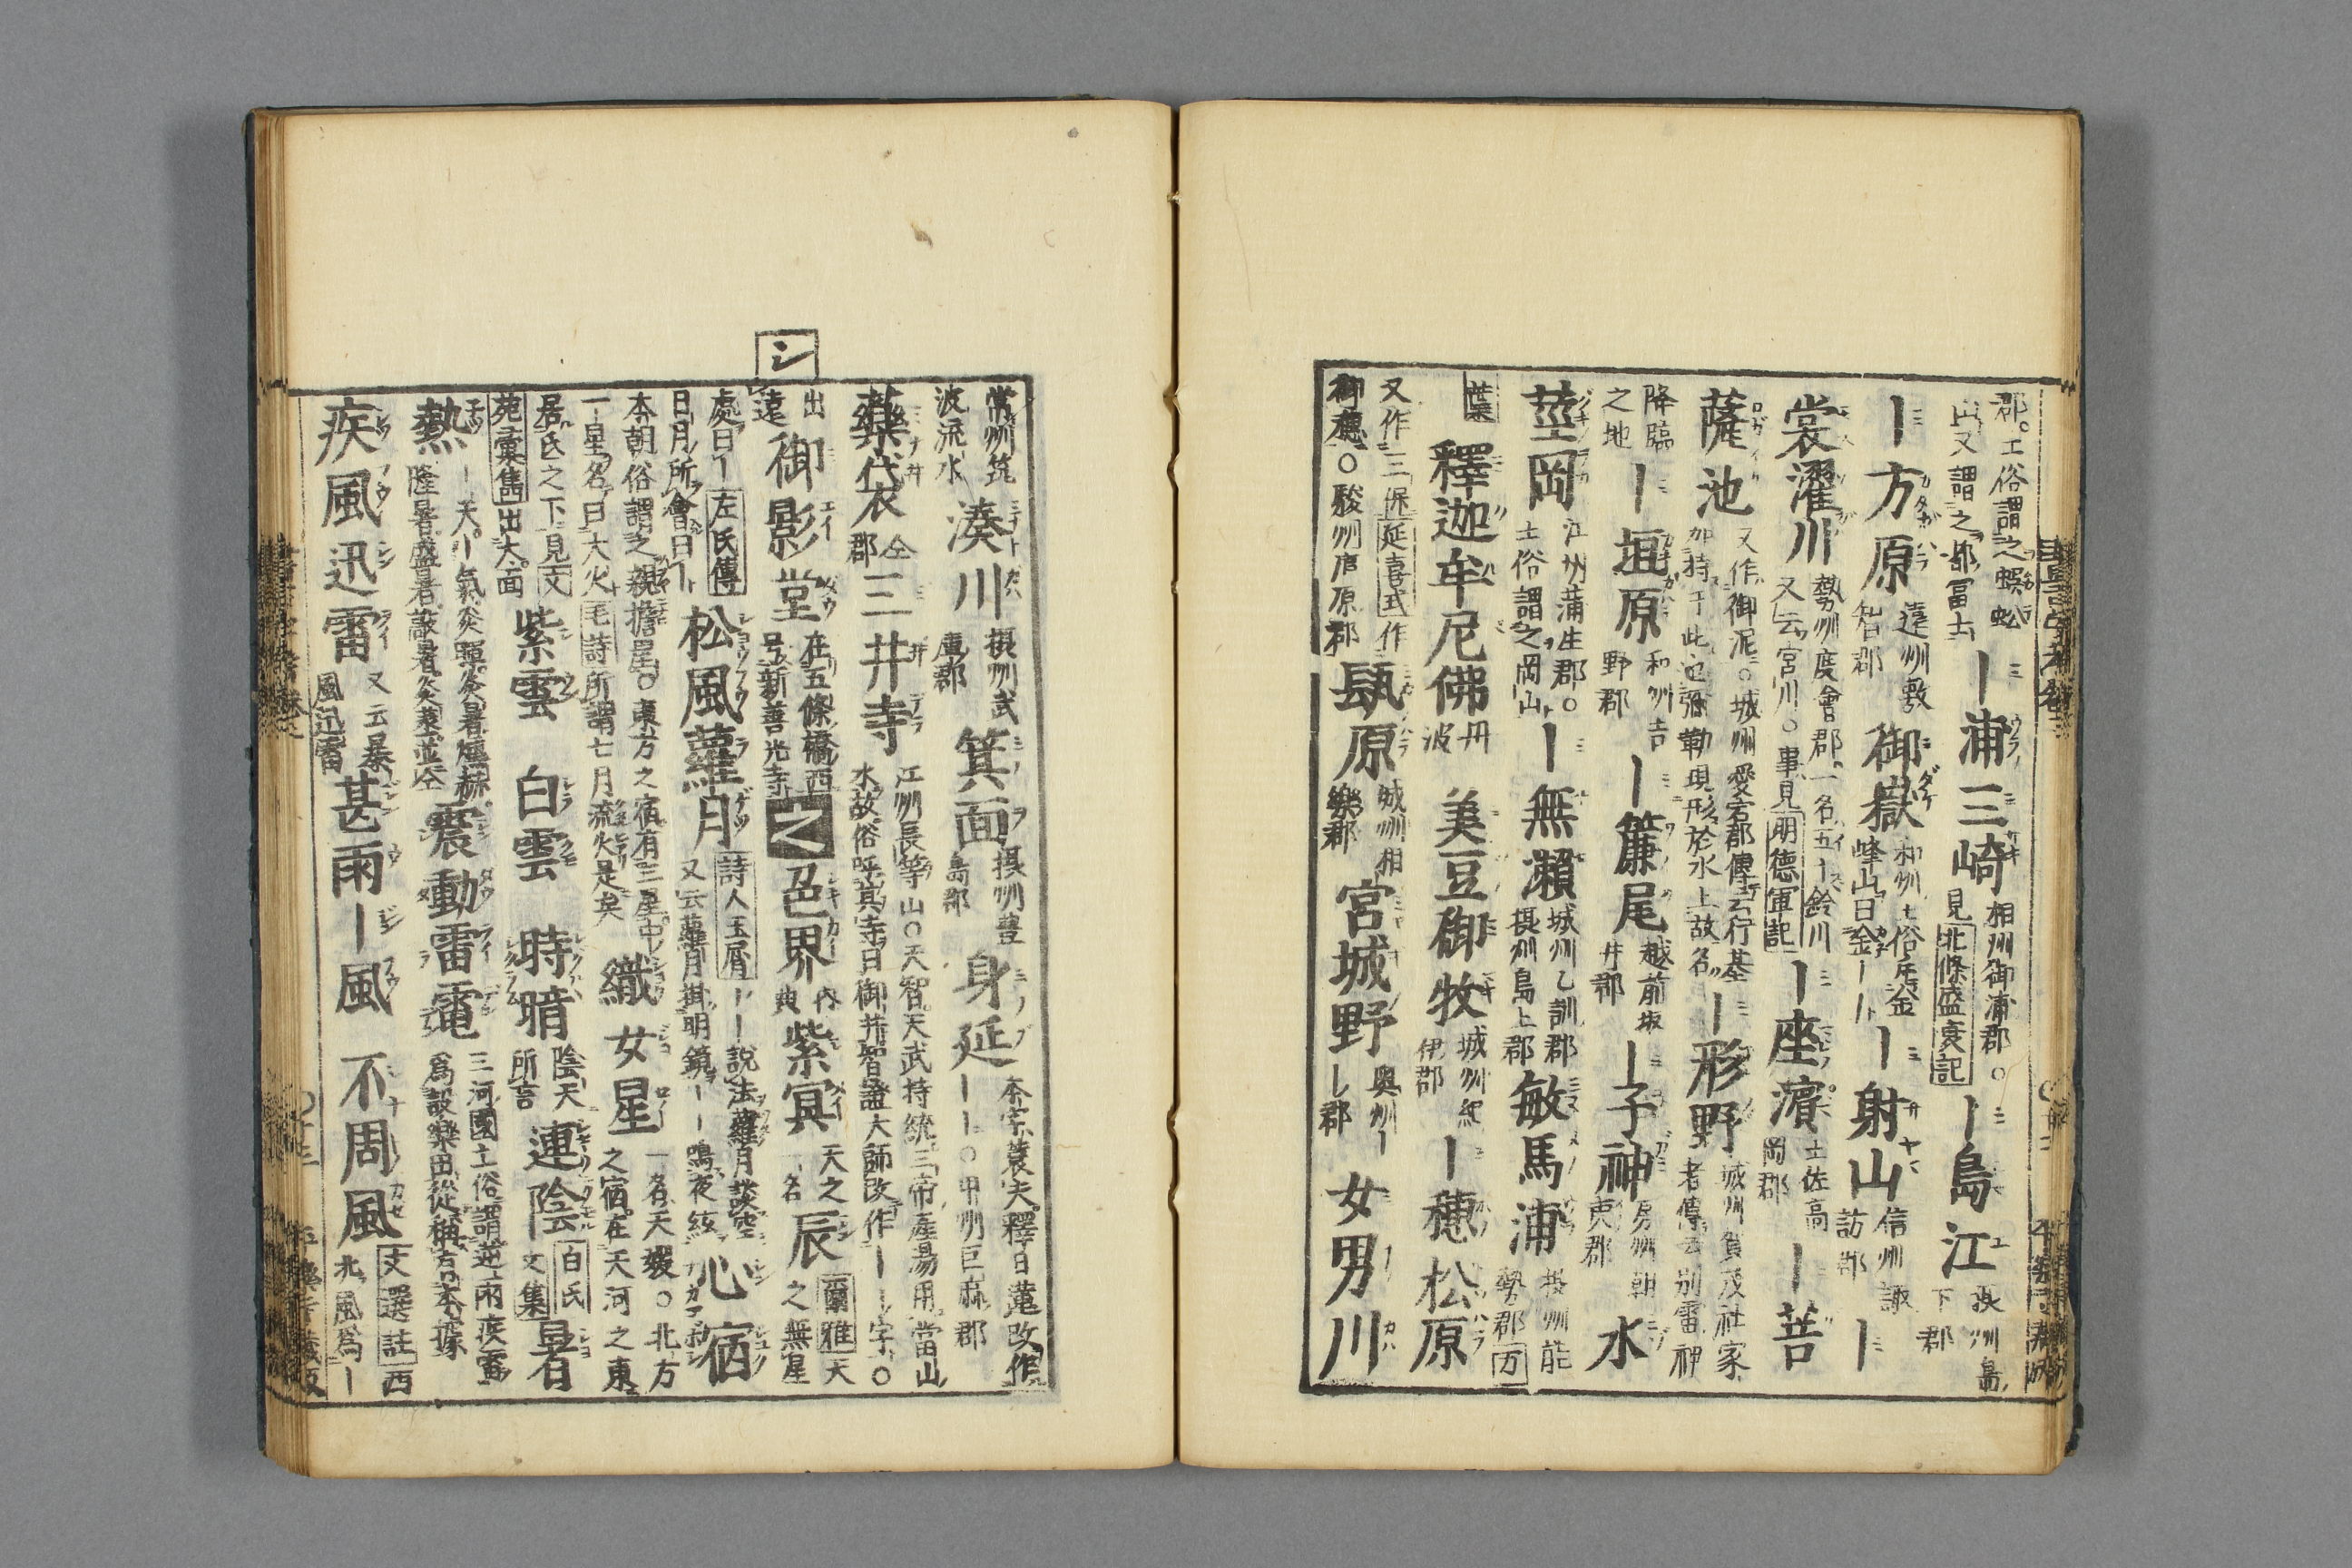 郡。土俗謂之蜈蚣
山又謂之都冨士
ー浦三崎
相州御浦郡。
見北條盛衰記
ー島江
摂州島
下郡
ー方原
遠州敷
智郡
御嶽
和州土俗呼金
峰山曰金ーー
ー射山
信州諏
訪郡
ー
裳濯川
勢州度會郡一名五ー鈴川
又云宮川。事見明徳軍記
ー座濱
土佐高
岡郡
ー菩
薩池
又作御泥。城州愛宕郡傳云行基
加持于此池弥勒現形於水上故名
ー形野
城州賀茂社家
者傳云別雷神
降臨
之地
ー垣原
和州吉
野郡
ー簾尾
越前坂
井郡
ー子神
房州朝
夷郡
水
莖岡
江州蒲生郡。
土俗謂之岡山
ー無瀬
城州乙訓郡
摂州島上郡
敏馬浦
摂州能
勢郡万
葉
釋迦牟尼佛
丹
波
美豆御牧
城州紀
伊郡
ー穂松原
又作三保延喜式作
御穂。駿州庵原郡
瓺原
城州相
樂郡
宮城野
奥州ー
ー郡
女男川
常州筑
波流水
湊川
摂州武
庫郡
箕面
摂州豊
島郡
身延
本宗蓑夫釋日蓮改作
ーー。甲州巨麻郡
藥袋
仝
郡
三井寺
江州長等山。天智天武持統三帝産湯用當山
水故俗呼其寺曰御井智證大師改作ーー字。
出
遠
御影堂
在五條橋西
号新善光寺
シ
之
色界
内
典
紫冥
天之
一名
辰
爾雅天
之無星
處曰ー左氏傳
日月所會曰ー
松風蘿月
詩人玉屑ーー説法蘿月談空
又云蘿月掛明鏡ーー鳴夜絃
心宿
本朝俗謂之親擔星。東方之宿有三星中
一星名曰大火毛詩所謂七月流火是矣
織女星
一名天媛。北方
之宿在天河之東
居氏之下見文
苑彙雋出大面
紫雲
白雲
時暗
陰天
所言
連陰
白氏
文集
暑
熱
ー天。ー氣炎暉。炎暑燻赫。
隆暑盛暑敲暑炎蒸並仝
震動雷電
三河國土俗謂逆雨疾雷
爲設樂田從稱言本據
疾風迅雷
又云暴
風迅雷
甚雨ー風
不周風
文選註西
北風為ー